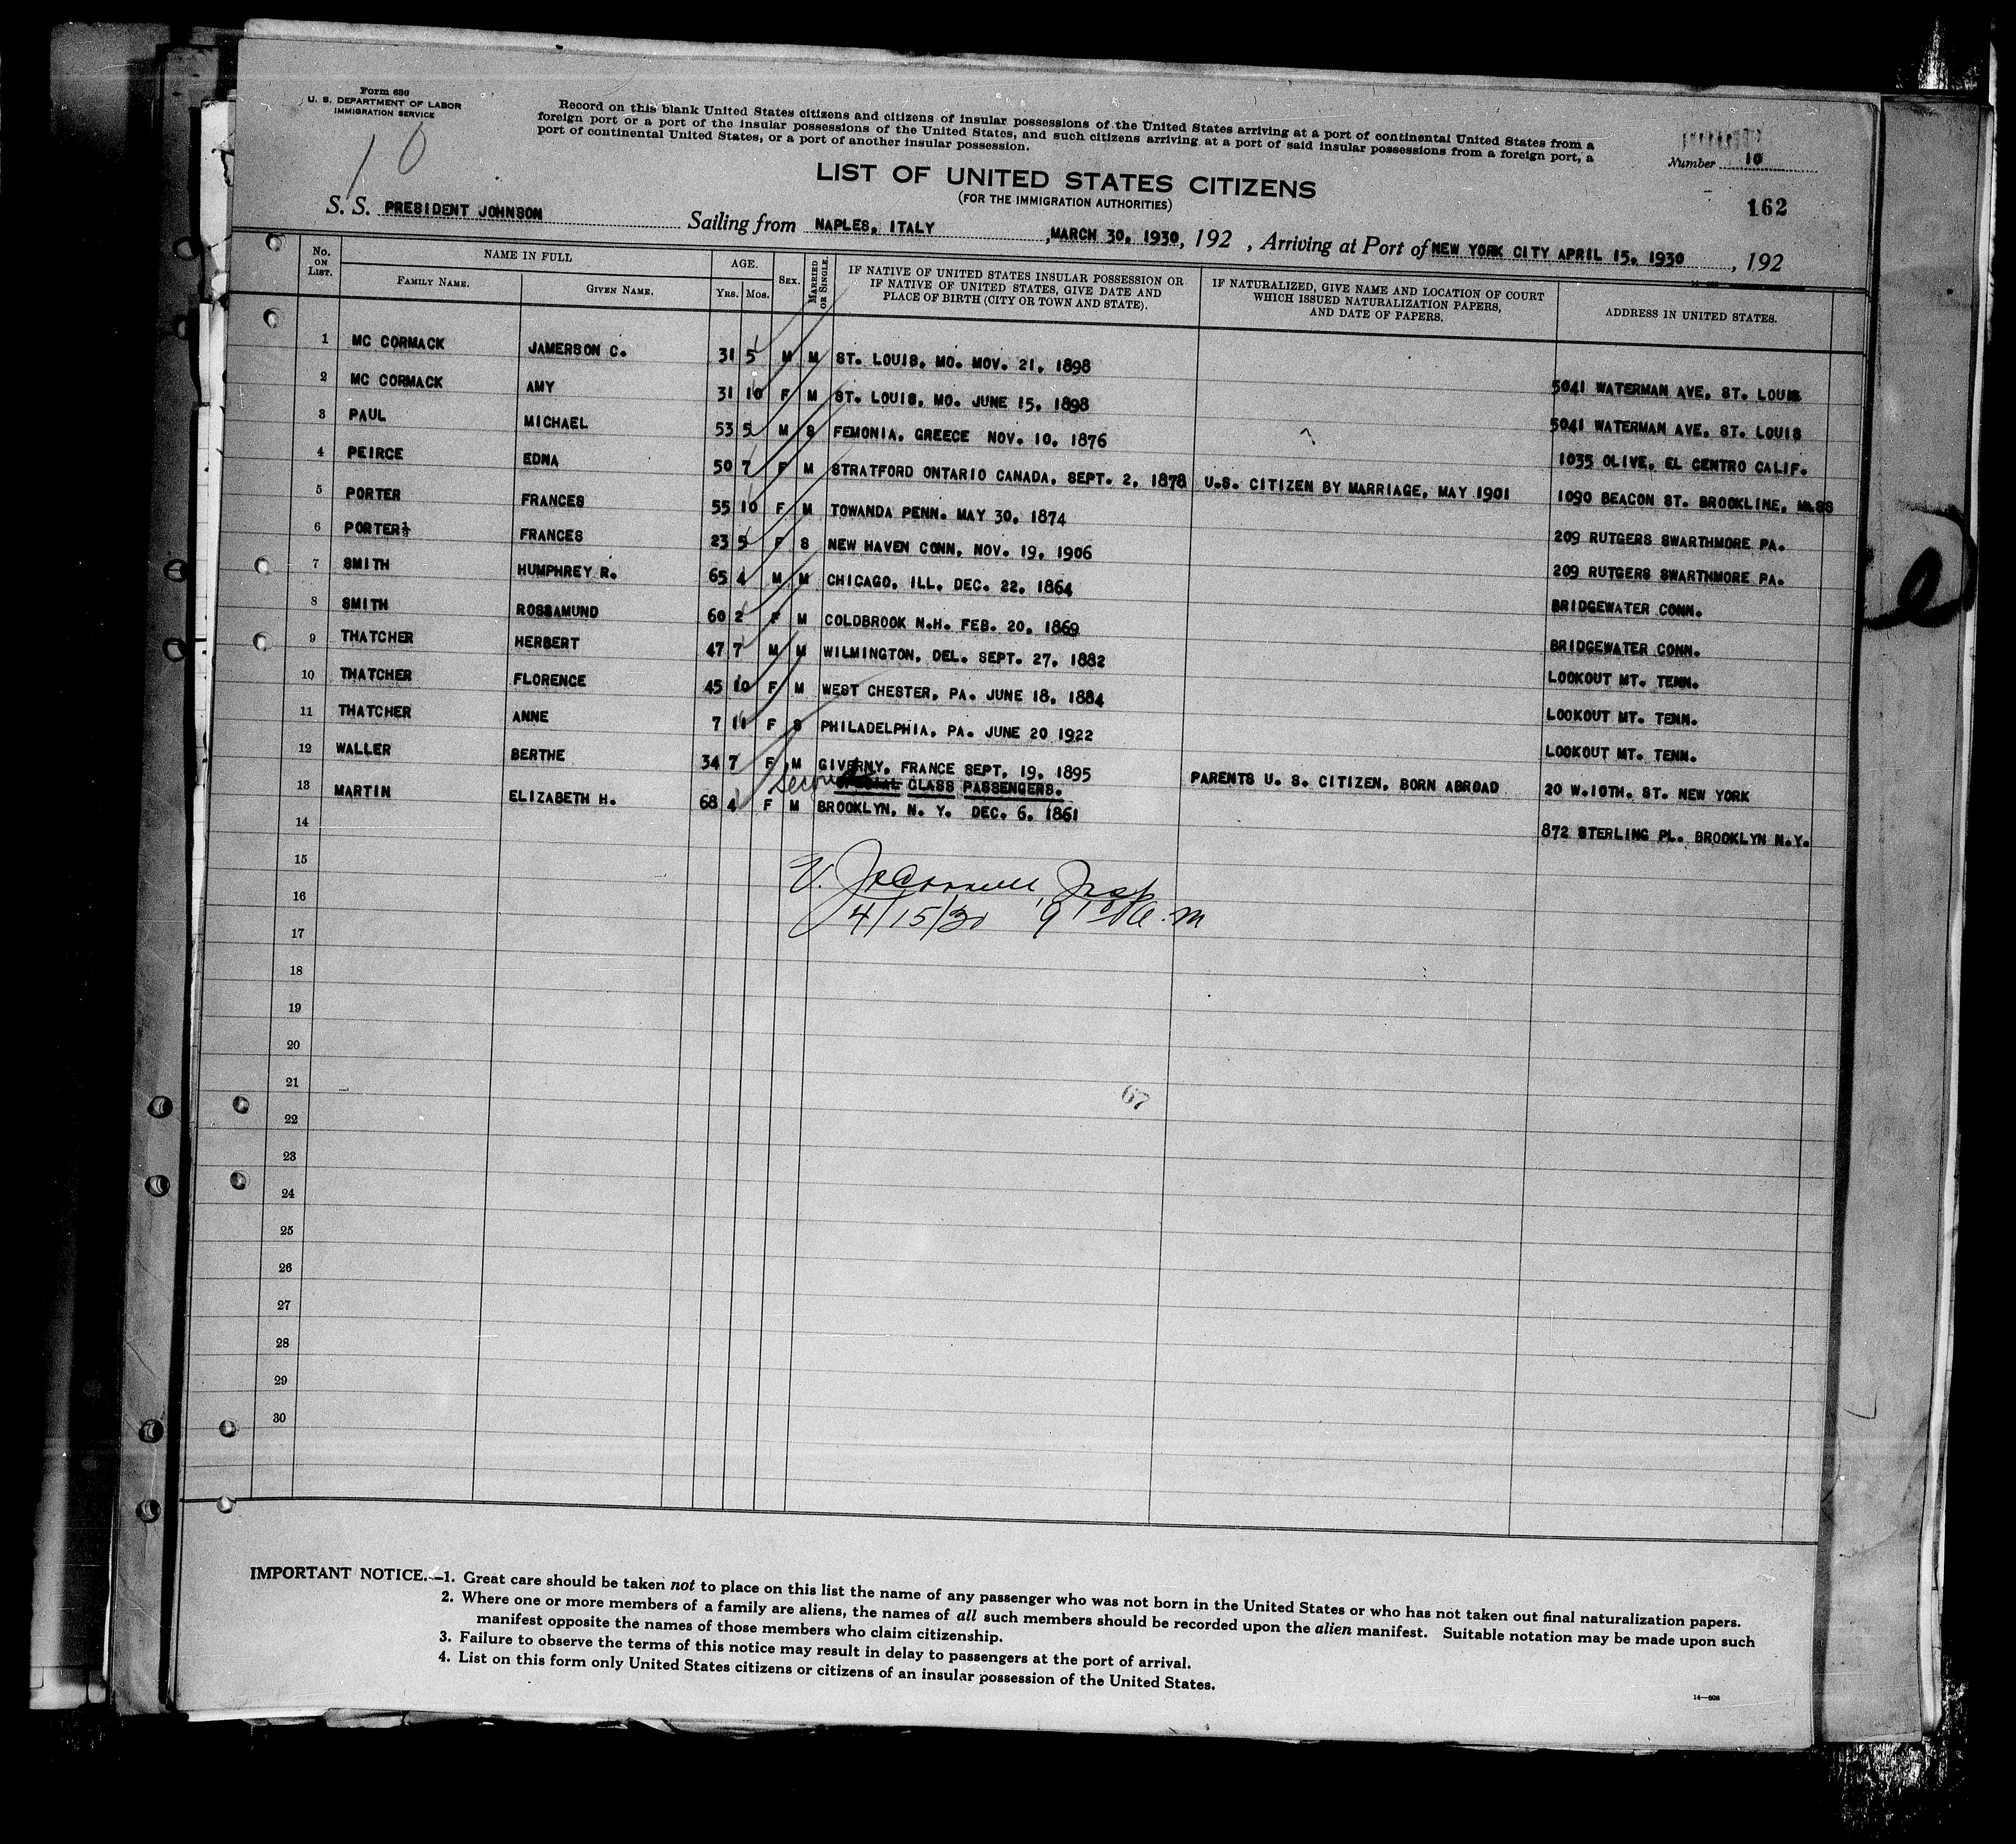 Form 630
U. S. DEPARTMENT OF LABOR
IMMIGRATION SERVICE
10
Record on this blank United States citizens and citizens of insular possessions of the United States arriving at a port of continental United States from a
foreign port or a port of the insular possessions of the United States, and such citizens arriving at a port of said insular possessions from a foreign port, a
port of continental United States, or a port of another insular possession.
Number 10
LIST OF UNITED STATES CITIZENS
(FOR THE IMMIGRATION AUTHORITIES)
162
S. S. PRESIDENT JOHNSON Sailing from NAPLES, ITALY, MARCH 30, 1930, 192 , Arriving at Port of NEW YORK CITY APRIL 15, 1930, 192
No. ON LIST. NAME IN FULL FAMILY NAME. GIVEN NAME. AGE. YRS. MOS. SEX. MARRIED OR SINGLE. IF NATIVE OF UNITED STATES INSULAR POSSESSION OR IF NATIVE OF UNITED STATES, GIVE DATE AND PLACE OF BIRTH (CITY OR TOWN AND STATE). IF NATURALIZED, GIVE NAME AND LOCATION OF COURT WHICH ISSUED NATURALIZATION PAPERS, AND DATE OF PAPERS. ADDRESS IN UNITED STATES.
1 MC CORMACK JAMERSON C. 31 5 M M ST. LOUIS, MO. MOV. 21, 1898 5041 WATERMAN AVE, ST. LOUIS
2 MC CORMACK AMY 31 10 F M ST. LOUIS, MO. JUNE 15, 1898 5041 WATERMAN AVE, ST. LOUIS
3 PAUL MICHAEL 53 5 M S FEMONIA, GREECE NOV. 10, 1876 1035 OLIVE, EL CENTRO CALIF.
4 PEIRCE EDNA 50 7 F M STRATFORD ONTARIO CANADA, SEPT. 2, 1878 U.S. CITIZEN BY MARRIAGE, MAY 1901 1090 BEACON ST. BROOKLINE, MASS
5 PORTER FRANCES 55 10 F M TOWANDA PENN. MAY 30, 1874 209 RUTGERS SWARTHMORE PA.
6 PORTER FRANCES 23 5 F S NEW HAVEN CONN, NOV. 19, 1906 209 RUTGERS SWARTHMORE PA.
7 SMITH HUMPHREY R. 65 4 M M CHICAGO, ILL. DEC. 22, 1864 BRIDGEWATER CONN.
8 SMITH ROSSAMUND 60 2 F M COLDBROOK N.H. FEB. 20, 1869 BRIDGEWATER CONN.
9 THATCHER HERBERT 47 7 M M WILMINGTON, DEL. SEPT. 27, 1882 LOOKOUT MT. TENN.
10 THATCHER FLORENCE 45 10 F M WEST CHESTER, PA. JUNE 18, 1884 LOOKOUT MT. TENN.
11 THATCHER ANNE 7 11 F S PHILADELPHIA, PA. JUNE 20 1922 LOOKOUT MT. TENN.
12 WALLER BERTHE 34 7 F M GIVERNY, FRANCE SEPT, 19, 1895 PARENTS U. S. CITIZEN, BORN ABROAD 20 W.10TH. ST. NEW YORK
Second CLASS PASSENGERS.
13 MARTIN ELIZABETH H. 68 4 F M BROOKLYN, N. Y. DEC. 6, 1861 872 STERLING PL. BROOKLYN N.Y.
14
15
16
4/15/30
17
18
19
20
21
67
22
23
24
25
26
27
28
29
30
IMPORTANT NOTICE.—1. Great care should be taken not to place on this list the name of any passenger who was not born in the United States or who has not taken out final naturalization papers.
2. Where one or more members of a family are aliens, the names of all such members should be recorded upon the alien manifest. Suitable notation may be made upon such
manifest opposite the names of those members who claim citizenship.
3. Failure to observe the terms of this notice may result in delay to passengers at the port of arrival.
4. List on this form only United States citizens or citizens of an insular possession of the United States.
14—608